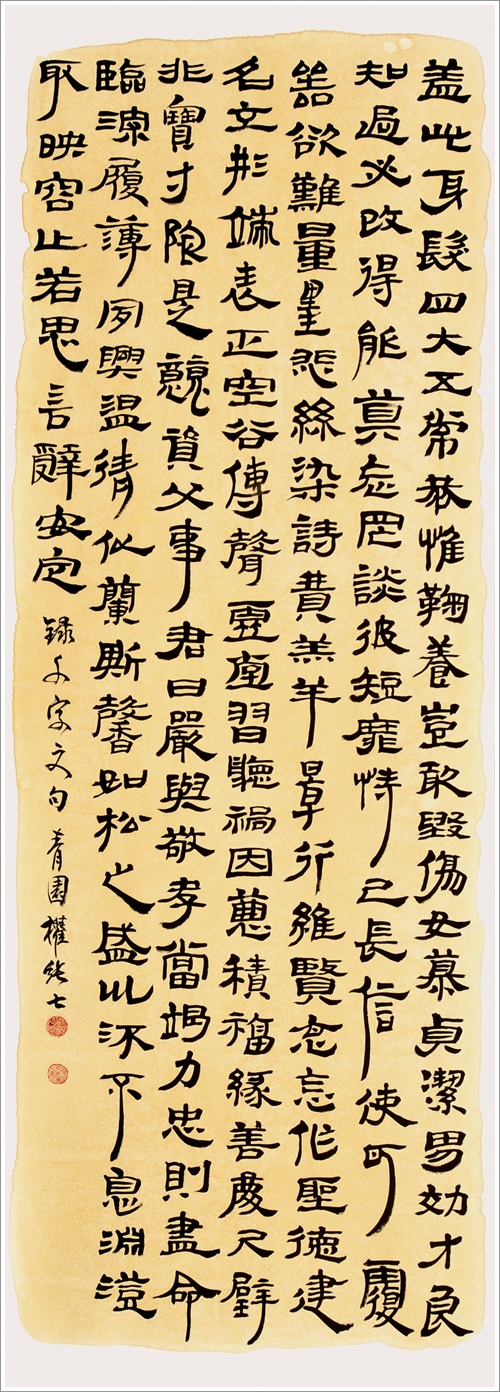 盖此身髮四大五常恭惟鞠養豈敢毀傷女慕貞潔男効才良
知過必改得能莫忘罔談彼短靡恃己長信使可覆
器欲難量墨悲絲染詩贊羔羊景行維賢克念作聖德建
名立形端表正空谷傳聲虛堂習聽禍因惡積福緣善慶尺璧
非寶寸陰是競資父事君曰嚴與敬孝當竭力忠則盡命
臨深履薄夙興温凊似蘭斯馨如松之盛川流不息淵澄
取映容止若思言辭安定 録千字文句 青園權純七